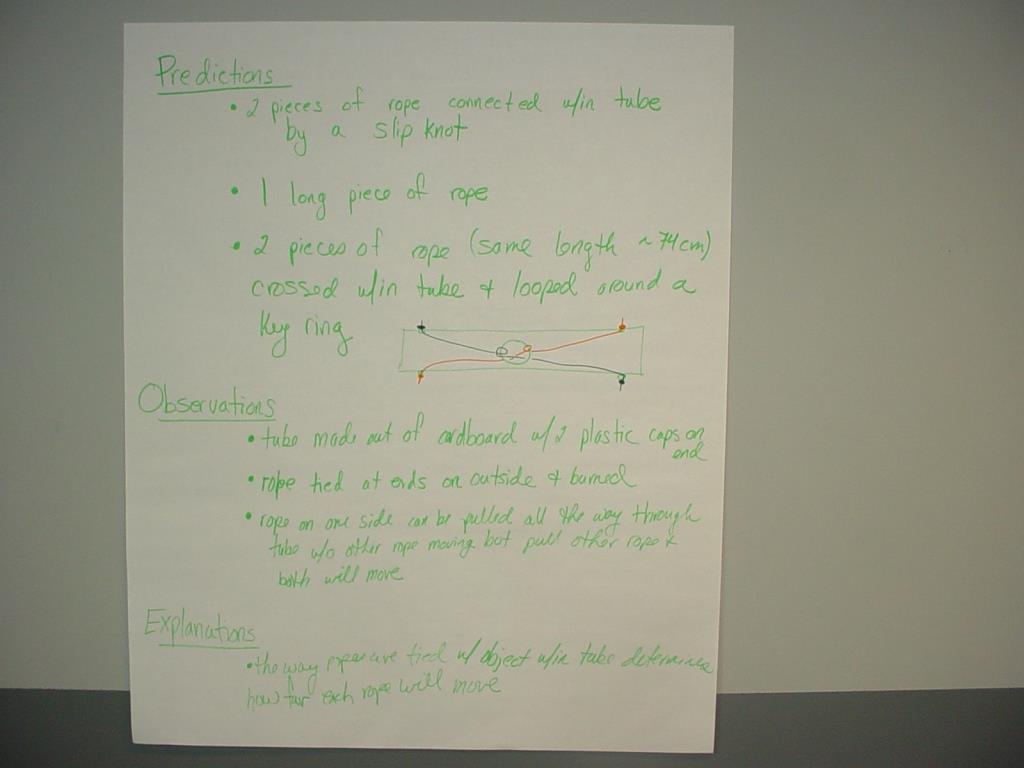 Predictions
• 2 pieces of rope connected w/in tube
by a slip knot
• 1 long piece of rope
• 2 pieces of rope (same length ~ 74cm)
crossed w/in tube + looped around a
key ring
Observations
• tube made out of cardboard w/ 2 plastic caps on
end
• rope tied at ends on outside + burned
• rope on one side can be pulled all the way through
tube w/o other rope moving but pull other rope +
both will move
Explanations
• the way ropes are tied w/ object w/in tube determines
how far each rope will move